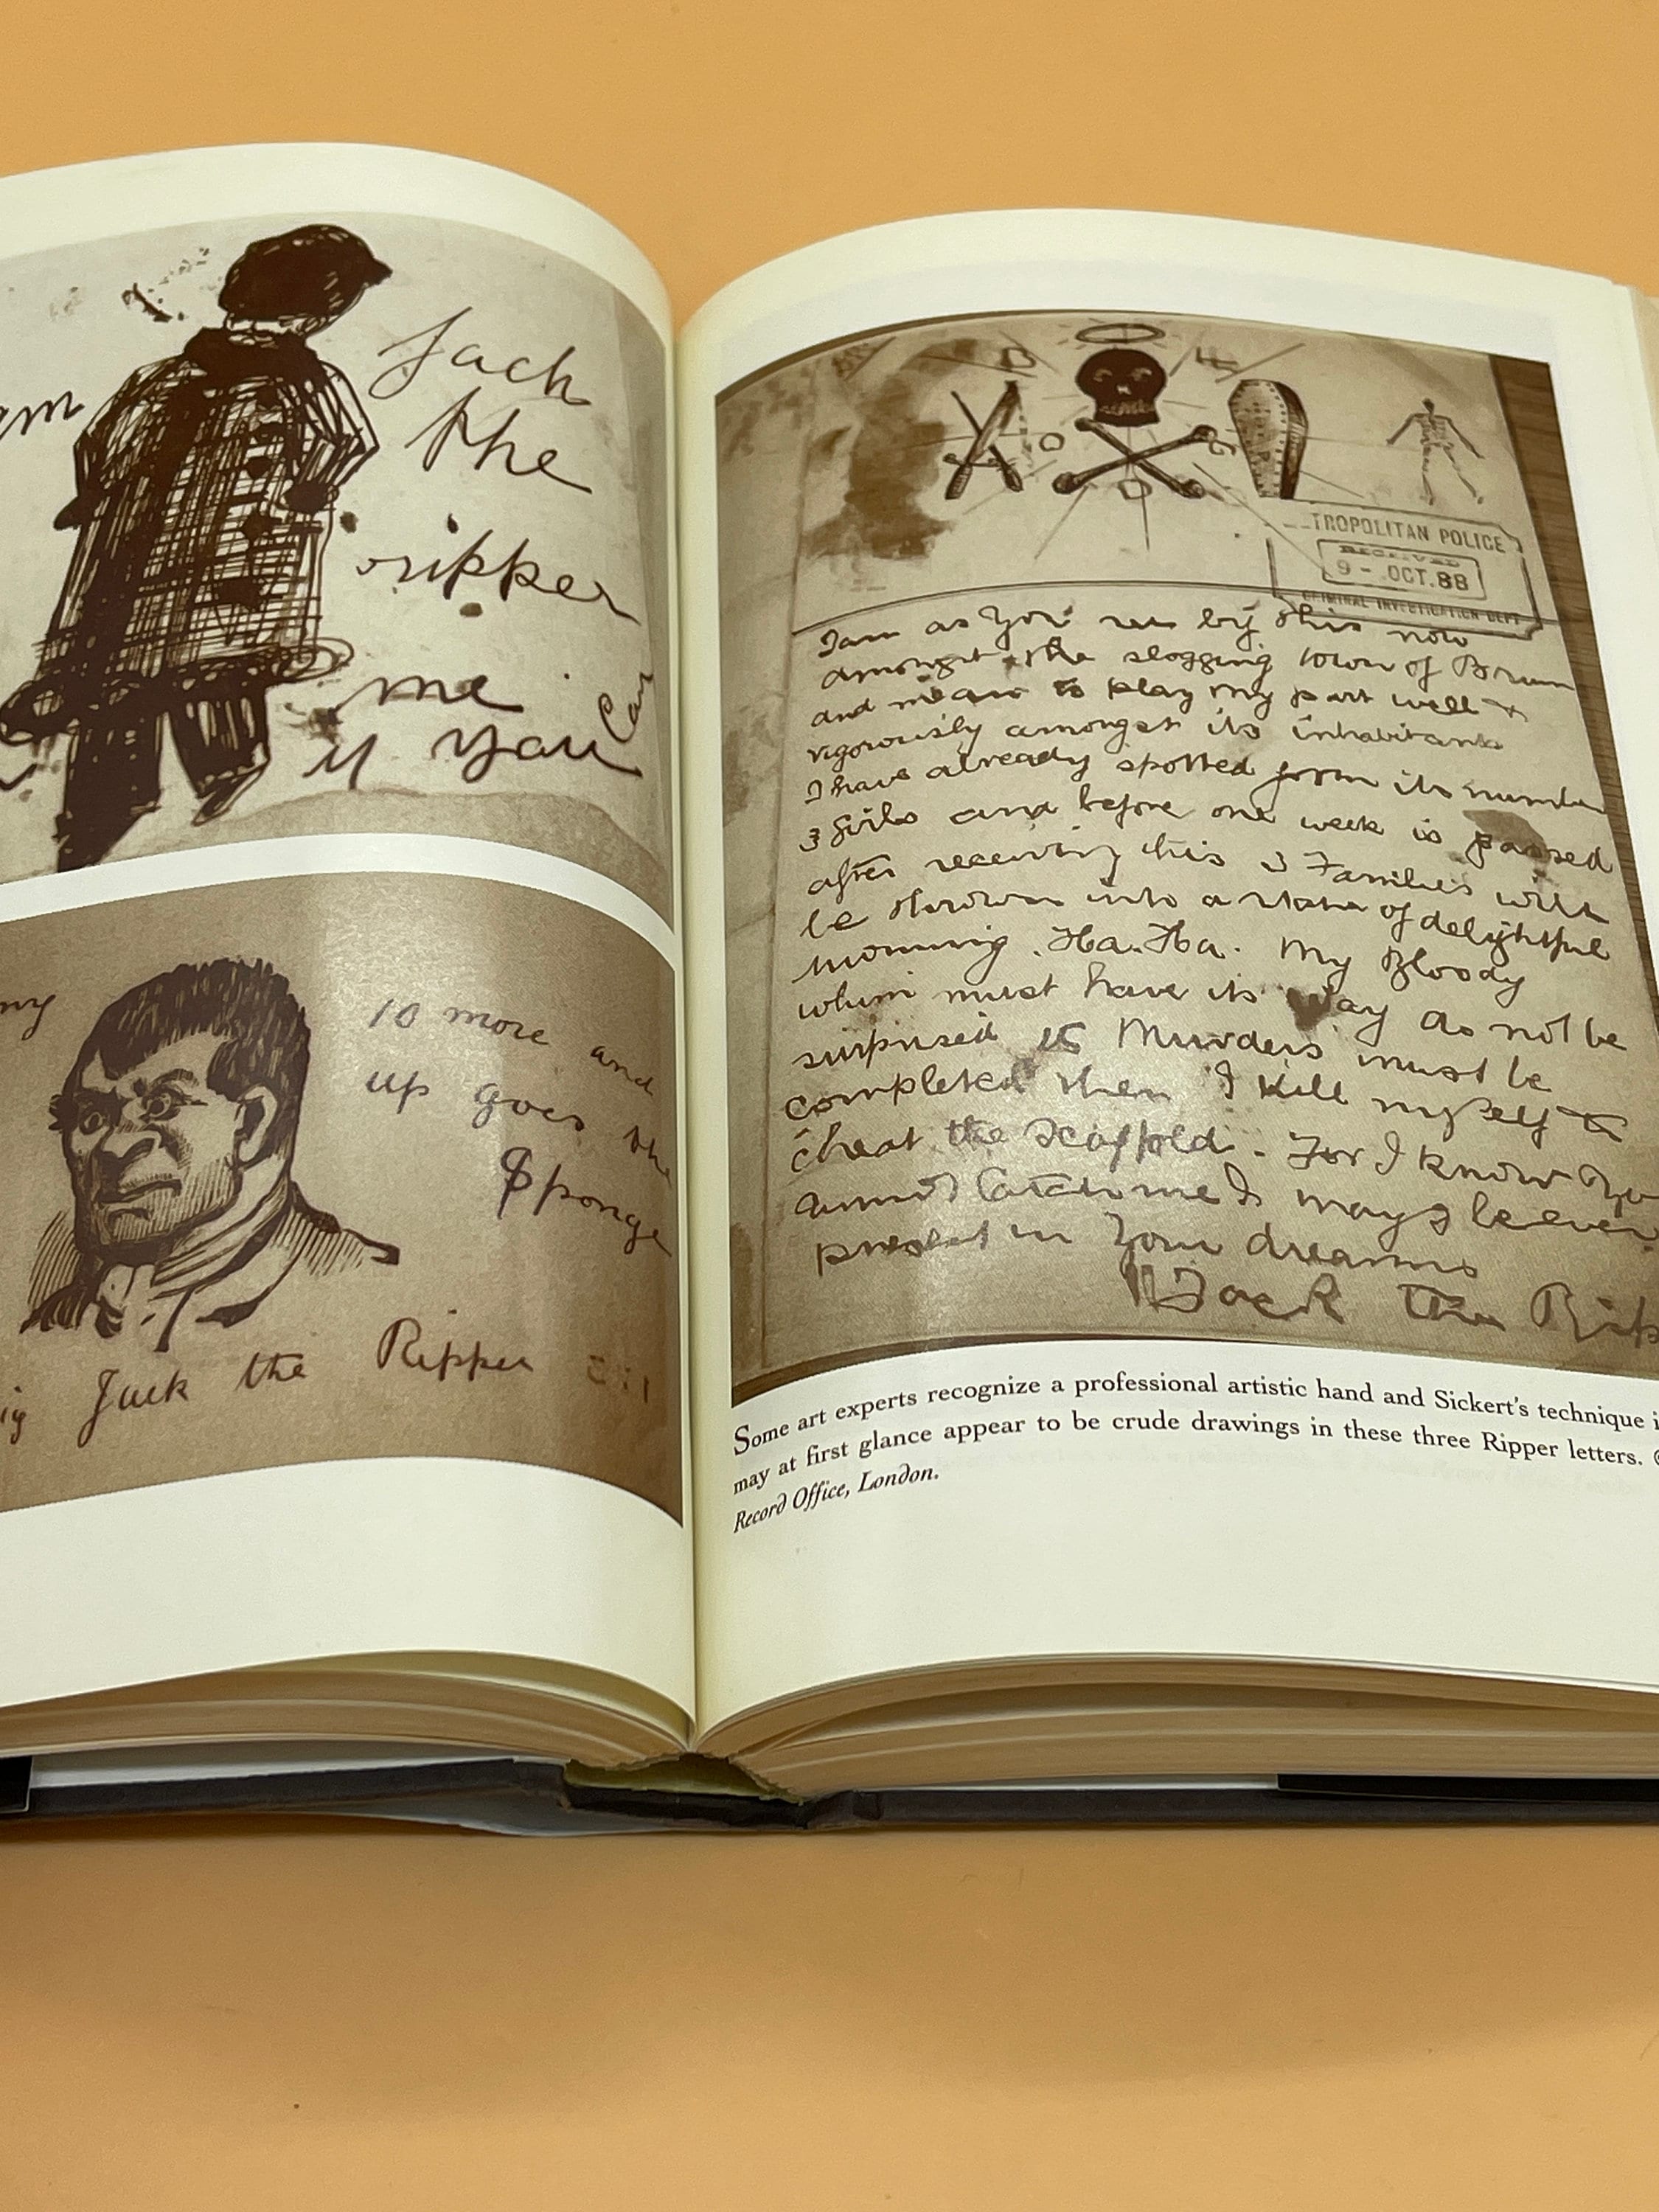 am
Jack
the
ripper
me
if you
Can
my
10 more and
up goes the
Sponge
Jack the Ripper
TROPOLITAN POLICE
RECEIVED
9 - OCT.88
CRIMINAL INVESTIGATION DEPT
I am as you see by this now
amongst the slogging town of Brum
and mean to play my part well &
vigorously amongst its inhabitants
I have already spotted from its number
3 Girls and before one week is passed
after receiving this 3 Families will
be thrown into a state of delightful
mourning. Ha. Ha. My Bloody
whim must have its way do not be
surprised 15 Murders must be
completed then I kill myself to
cheat the Scaffold. For I know you
cannot catch me & may I be ever
present in your dreams
Jack the Rip
Some art experts recognize a professional artistic hand and Sickert's technique i
may at first glance appear to be crude drawings in these three Ripper letters. ©
Record Office, London.